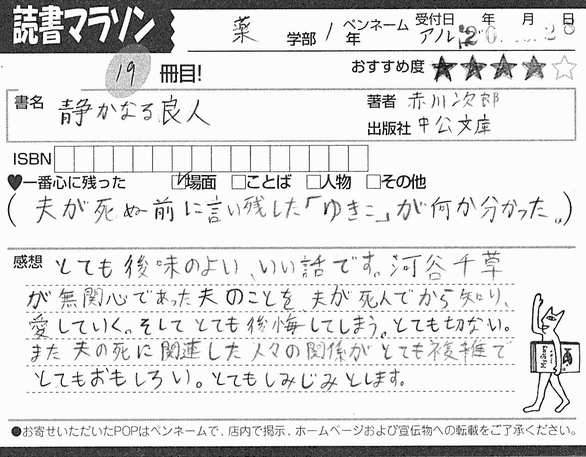 読書マラソン
薬 学部 / 年 ペンネーム アル 受付日 年 月 日
19 冊目!
おすすめ度 ★★★★☆
書名 静かなる良人
著者 赤川次郎
出版社 中公文庫
ISBN
♥一番心に残った ☑場面 □ことば □人物 □その他
(夫が死ぬ前に言い残した「ゆきこ」が何か分かった。)
感想 とても後味のよい、いい話です。河谷千草
が無関心であった夫のことを夫が死んでから知り、
愛していく。そしてとても後悔してしまう。とても切ない。
また夫の死に関連した人々の関係がとても複雑で
とてもおもしろい。とてもしみじみとします。
●お寄せいただいたPOPはペンネームで、店内で掲示、ホームページおよび宣伝物への転載をご了承ください。